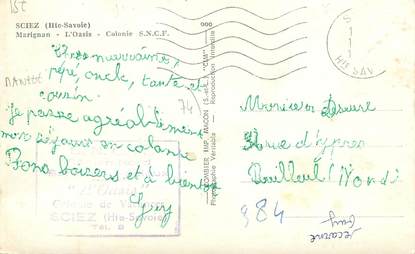 15€
SCIEZ (Hte-Savoie)
Marignan - L'Oasis - Colonie S.N.C.F.
Chère marraine,
pépé, oncle, tante et
cousin.
Je passe agréablement
mon séjour en colonie
Bons baisers et à bientôt
Guy
"L'Oasis"
Colonie de Vacances
SCIEZ (Hte-Savoie)
Tél. 8
74
000
COMBIER IMP. MACON (S.-et-L.) "CIM"
Photographie Véritable - Reproduction Interdite
S
Hte SAV
Monsieur
rue d'Ypres
Bailleul Nord
984